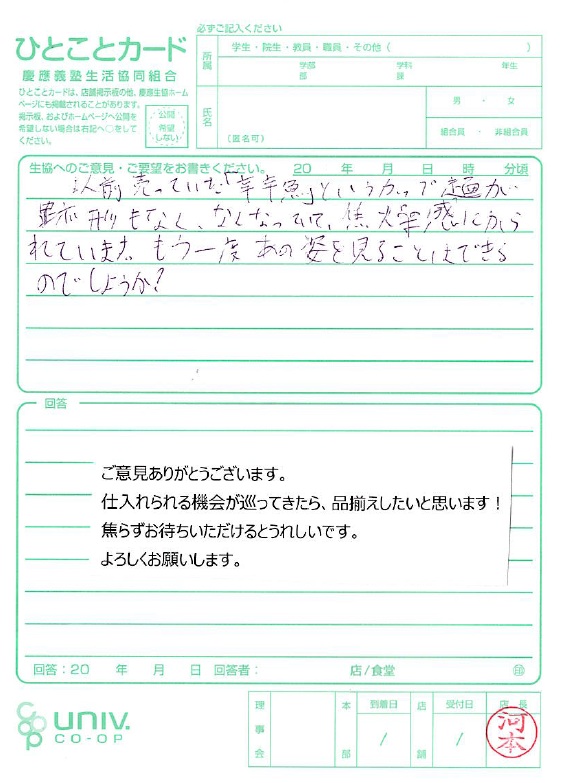 必ずご記入ください
ひとことカード
慶應義塾生活協同組合
ひとことカードは、店舗掲示板の他、慶應生協ホーム
ページにも掲載されることがあります。
掲示板、およびホームページへ公開を
希望しない場合は右記へ○をして
ください。
公開
希望
しない
所属
学生・院生・教員・職員・その他（　　　）
学部 学科 年生
部 課
氏名
（匿名可）
男 ・ 女
組合員 ・ 非組合員
生協へのご意見・ご要望をお書きください。 20 年 月 日 時 分頃
以前売っていた「辛辛魚」というカップ麺が
跡形もなく、なくなっていて、焦燥感にから
れています。もう一度あの姿を見ることはできる
のでしょうか？
回答
ご意見ありがとうございます。
仕入れられる機会が巡ってきたら、品揃えしたいと思います！
焦らずお待ちいただけるとうれしいです。
よろしくお願いします。
回答：20 年 月 日 回答者： 店/食堂 印
coop UNIV.
CO-OP
理事会
本部
到着日
/
店舗
受付日
/
店長
河本